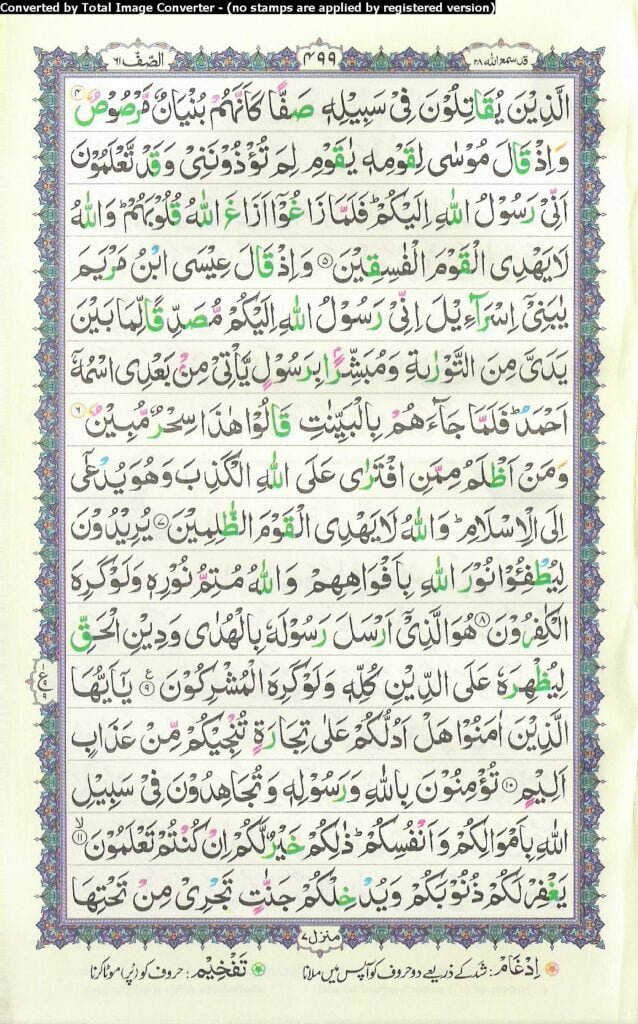 Converted by Total Image Converter - (no stamps are applied by registered version)
قد سمع الله ٢٨
٤٩٩
الصفّ ٦١
الَّذِيْنَ يُقَاتِلُوْنَ فِيْ سَبِيْلِهٖ صَفًّا كَاَنَّهُمْ بُنْيَانٌ مَّرْصُوْصٌ ۴
وَاِذْ قَالَ مُوْسٰى لِقَوْمِهٖ يٰقَوْمِ لِمَ تُؤْذُوْنَنِيْ وَقَدْ تَّعْلَمُوْنَ
اَنِّيْ رَسُوْلُ اللّٰهِ اِلَيْكُمْ ؕ فَلَمَّا زَاغُوْۤا اَزَاغَ اللّٰهُ قُلُوْبَهُمْ ؕ وَاللّٰهُ
لَا يَهْدِى الْقَوْمَ الْفٰسِقِيْنَ ۵ وَاِذْ قَالَ عِيْسَى ابْنُ مَرْيَمَ
يٰبَنِيْۤ اِسْرَآءِيْلَ اِنِّيْ رَسُوْلُ اللّٰهِ اِلَيْكُمْ مُّصَدِّقًا لِّمَا بَيْنَ
يَدَيَّ مِنَ التَّوْرٰىةِ وَمُبَشِّرًۢا بِرَسُوْلٍ يَّاْتِيْ مِنْۢ بَعْدِى اسْمُهٗۤ
اَحْمَدُ ؕ فَلَمَّا جَآءَهُمْ بِالْبَيِّنٰتِ قَالُوْا هٰذَا سِحْرٌ مُّبِيْنٌ ۶
وَمَنْ اَظْلَمُ مِمَّنِ افْتَرٰى عَلَى اللّٰهِ الْكَذِبَ وَهُوَ يُدْعٰۤى
اِلَى الْاِسْلَامِ ؕ وَاللّٰهُ لَا يَهْدِى الْقَوْمَ الظّٰلِمِيْنَ ۷ يُرِيْدُوْنَ
لِيُطْفِـُٔوْا نُوْرَ اللّٰهِ بِاَفْوَاهِهِمْ وَاللّٰهُ مُتِمُّ نُوْرِهٖ وَلَوْ كَرِهَ
الْكٰفِرُوْنَ ۸ هُوَ الَّذِيْۤ اَرْسَلَ رَسُوْلَهٗ بِالْهُدٰى وَدِيْنِ الْحَقِّ
لِيُظْهِرَهٗ عَلَى الدِّيْنِ كُلِّهٖ وَلَوْ كَرِهَ الْمُشْرِكُوْنَ ۹ يٰۤاَيُّهَا
الَّذِيْنَ اٰمَنُوْا هَلْ اَدُلُّكُمْ عَلٰى تِجَارَةٍ تُنْجِيْكُمْ مِّنْ عَذَابٍ
اَلِيْمٍ ۱۰ تُؤْمِنُوْنَ بِاللّٰهِ وَرَسُوْلِهٖ وَتُجَاهِدُوْنَ فِيْ سَبِيْلِ
اللّٰهِ بِاَمْوَالِكُمْ وَاَنْفُسِكُمْ ؕ ذٰلِكُمْ خَيْرٌ لَّكُمْ اِنْ كُنْتُمْ تَعْلَمُوْنَ ۱۱ۙ
يَغْفِرْ لَكُمْ ذُنُوْبَكُمْ وَيُدْخِلْكُمْ جَنّٰتٍ تَجْرِيْ مِنْ تَحْتِهَا
ع ۹
منزل ۷
اِدْغَام: شد کے ذریعے دو حروف کو آپس میں ملانا
تَفْخِیْم: حروف کو (پُر) موٹا کرنا